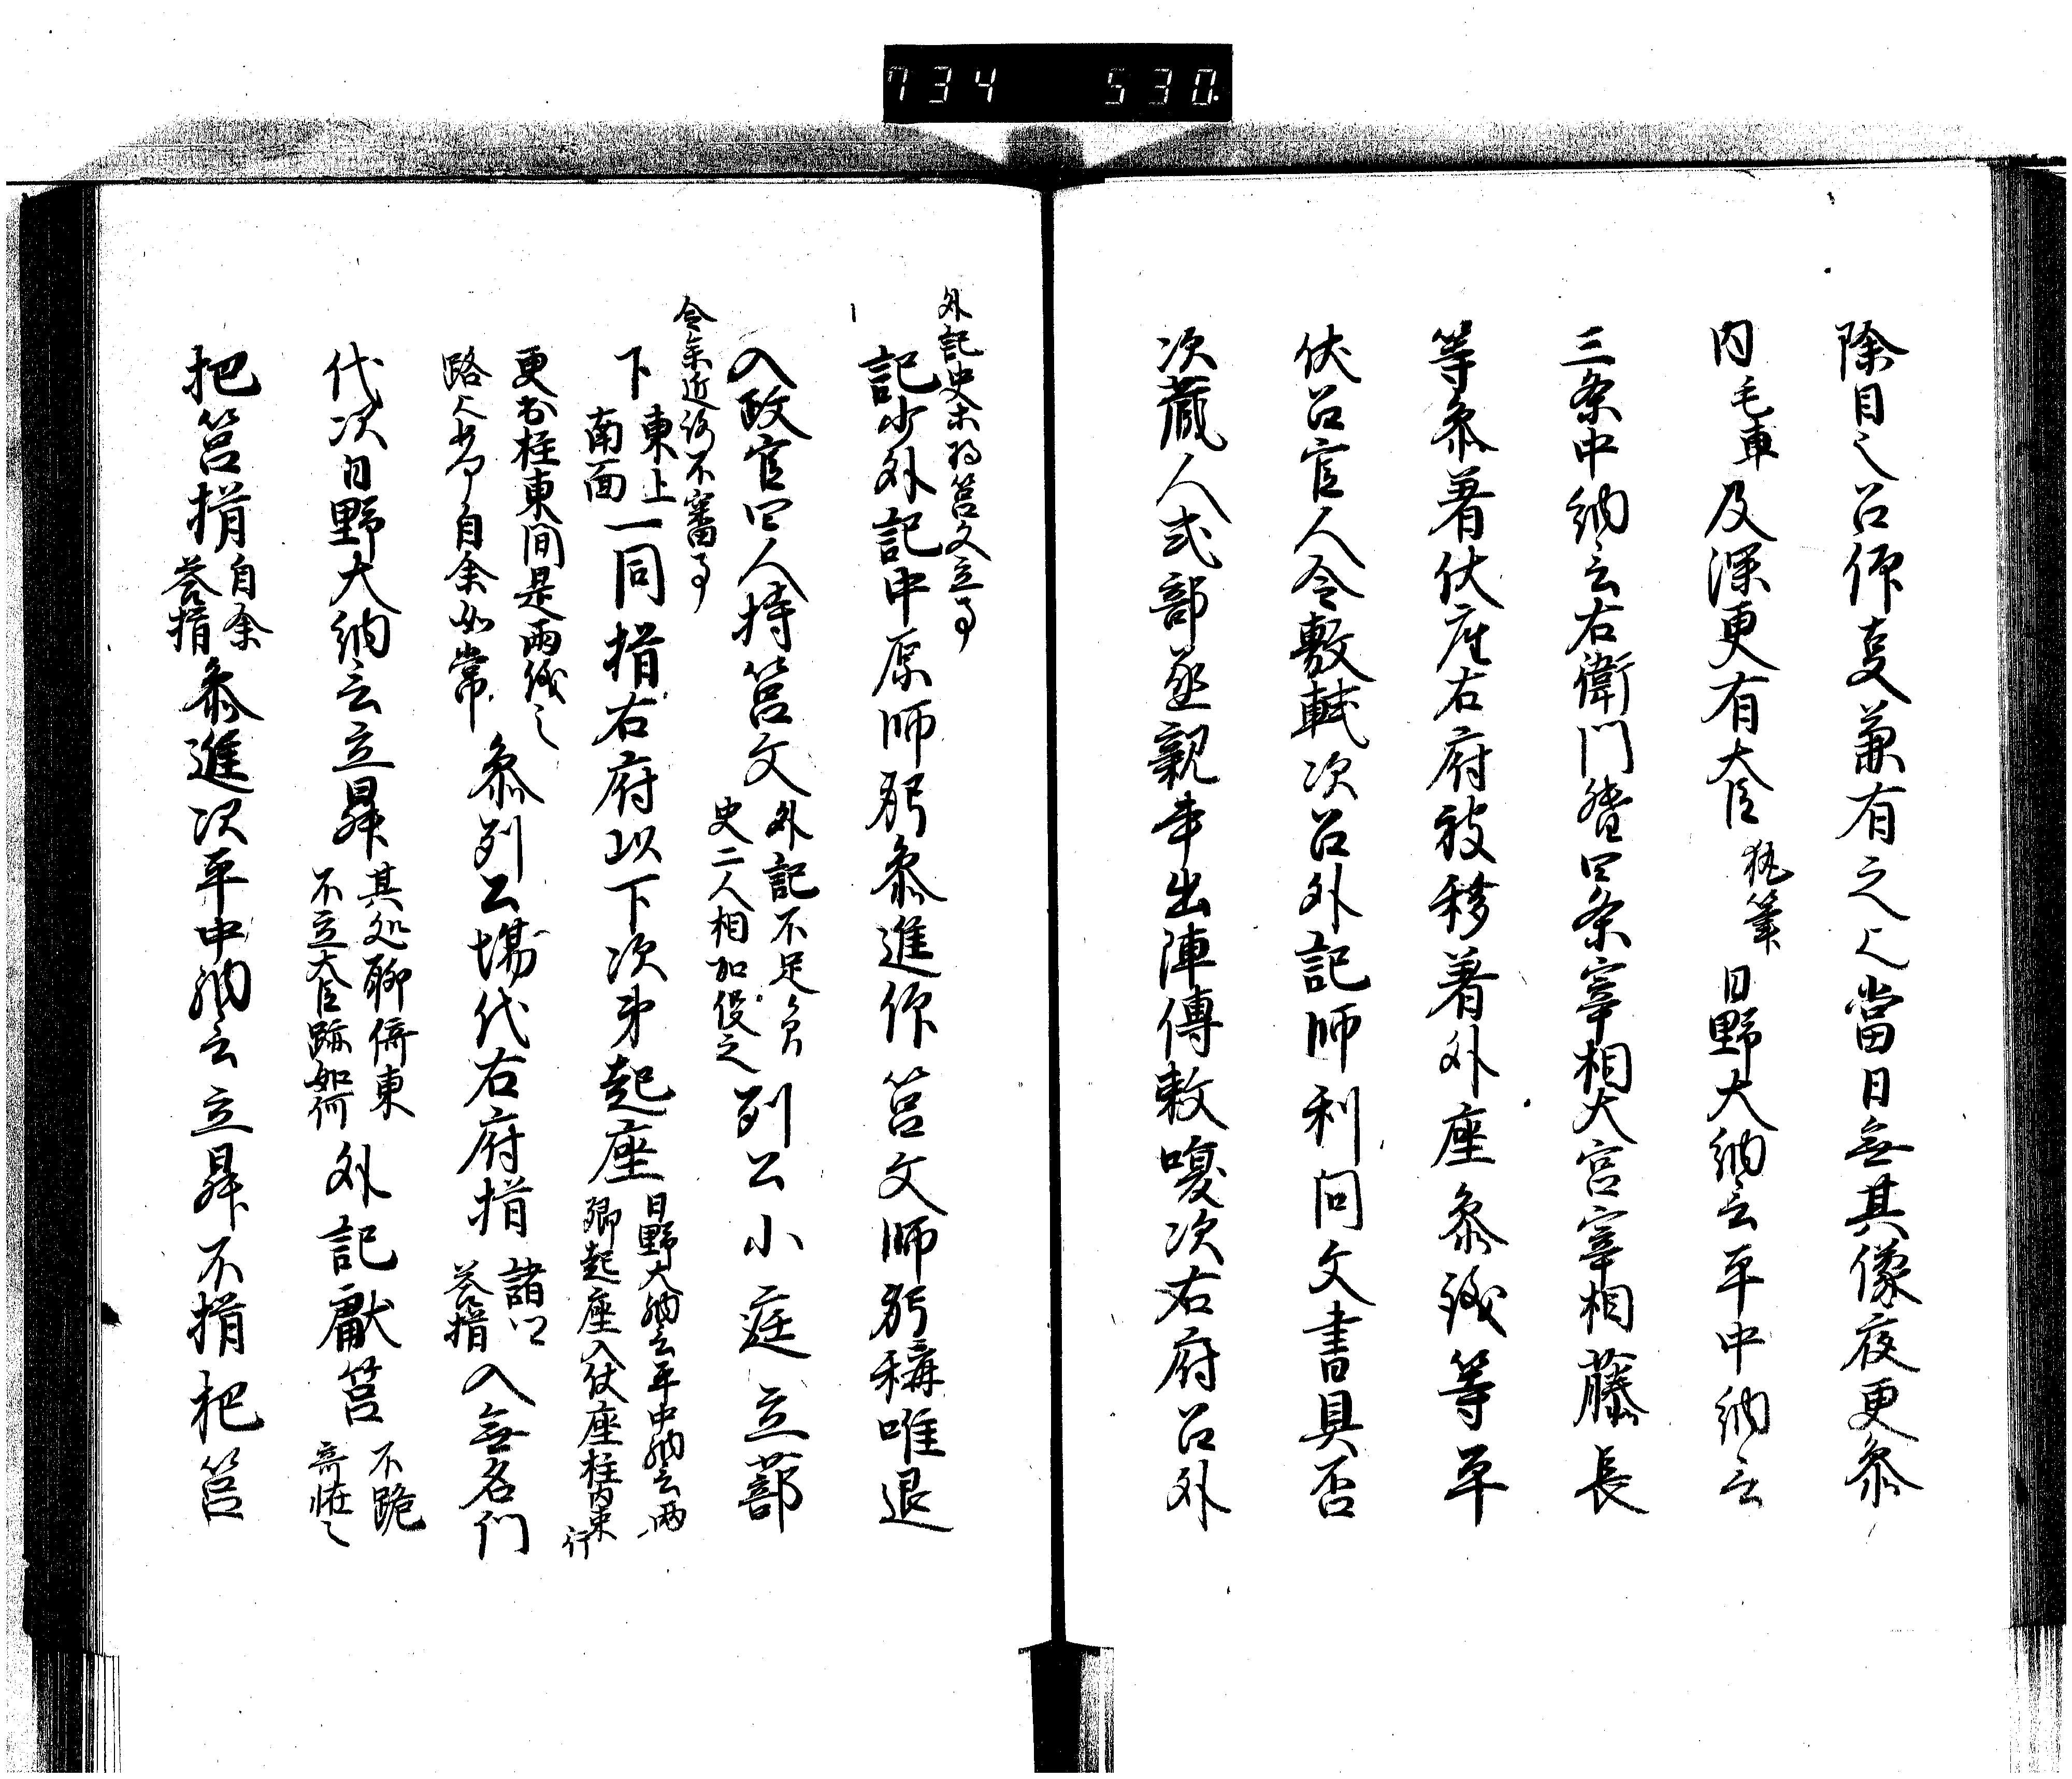 734 530
除目之召仰支兼有之上當日無其儀夜更参
内毛車及深更有大臣執筆日野大納言平中納言
三条中納言右衛門督四条宰相大宮宰相藤長
等参着仗座右府被移着外座参議等平
伏召官人令敷軾次召外記師利問文書具否
次蔵人式部丞親幸出陣傳敕嗄次右府召外
外記史木持筥文立事
記少外記中原師躬参進仰筥文師躬稱唯退
入政官四人持筥文外記不足之間
史二人相加役之列立小庭立蔀
令余近符不審事
下東上
南面一同揖右府以下次第起座日野大納言平中納言両
卿起座入仗座柱内東行
更出柱東間是両儀之
路上也自余如常参列弓場代右府揖諸卿
答揖入無名門
代次日野大納言立昇其処聊倚東
不立大臣跡如何外記献筥不跪
奇恠之
把筥揖自余
答揖参進次平中納言立昇不揖把筥